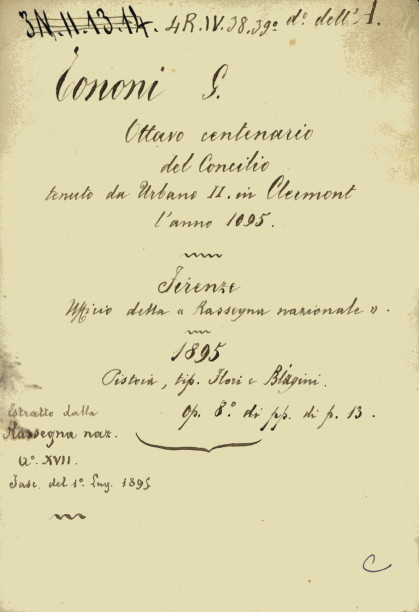 3N.11.13.14. 4R.IV.38.39º dº dell' A.
Tononi G.
Ottavo centenario
del Concilio
tenuto da Urbano II. in Clermont
l'anno 1095.
Firenze
Ufficio della « Rassegna nazionale ».
1895
Pistoia, tip. Flori e Biagini.
op. 8º di pp. di p. 13.
Estratto dalla
Rassegna naz.
Aº. XVII.
Fasc. del 1º. Lug. 1895
C